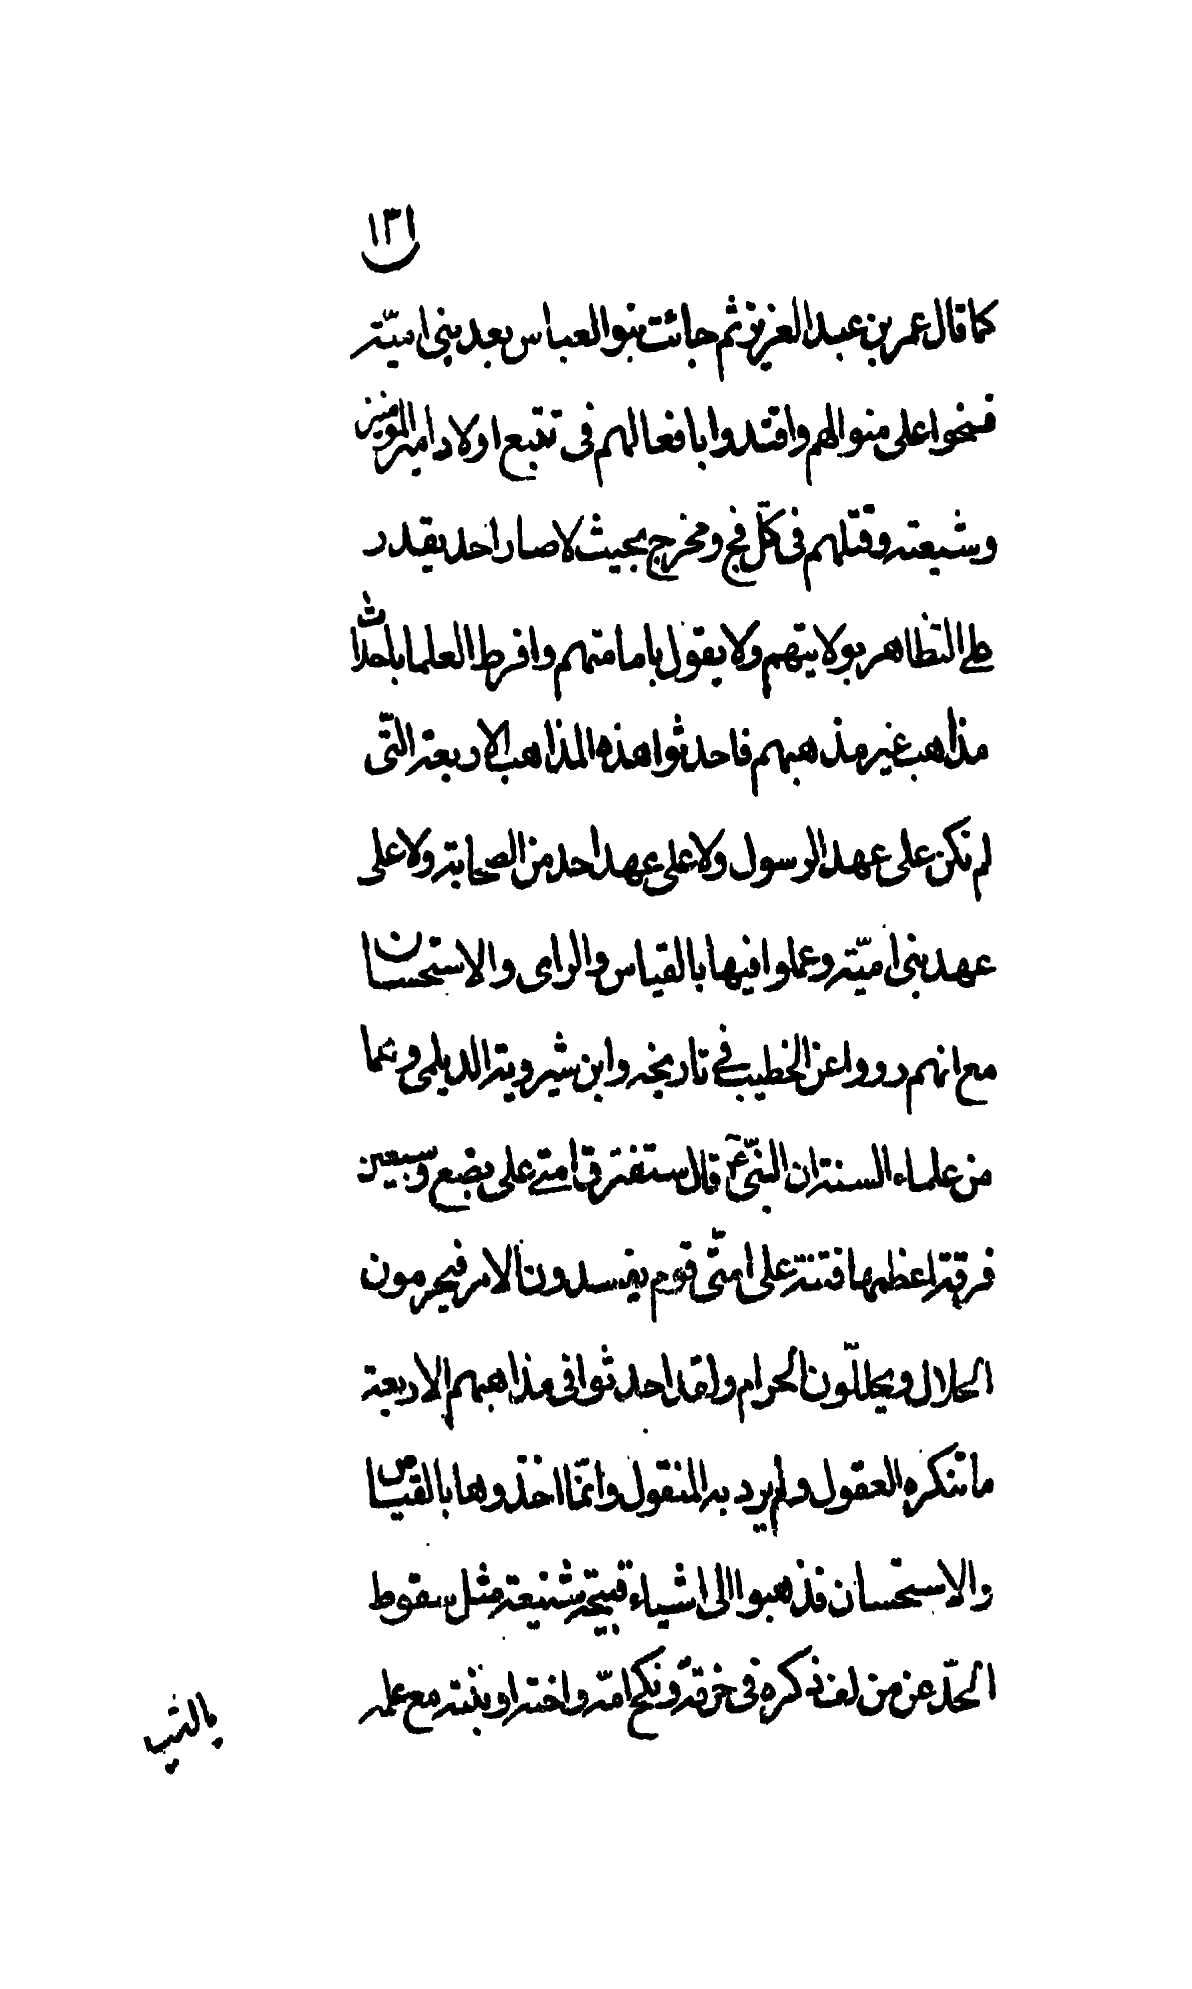 ١٣١
كما قال عمر بن عبد العزيز ثم جائت بنوا العباس بعد بنى اميّة
فنحوا على منوالهم واقتدوا بافعالهم فى تتبع اولاد امير المومنين
وشيعته وقتلهم فى كلّ فج ومخرج بحيث لا صار احد يقدر
على التظاهر بولايتهم ولا يقول بامامتهم وافرط العلما باحداث
مذاهب غير مذهبهم فاحدثوا هذه المذاهب الاربعة التّى
لم تكن على عهد الرسول ولا على عهد احد من الصحابة ولا على
عهد بنى اميّة وعملوا فيها بالقياس والراى والاستحسان
مع انهم رووا عن الخطيب فى تاريخه وابن شيرويه الديلمى وهما
من علماء السنة ان النبّى ع قال ستفترق امتى على بضع وسبعين
فرقة اعظمها فتنة على امتّى قوم يفسدون الامر فيحرمون
الحلال ويحللّون الحرام ولقد احدثوا فى مذاهبهم الاربعة
ما تنكره العقول ولم يرد به المنقول وانّما اخذوها بالقياس
والاستحسان فذهبوا الى اشياء قبيحة شنيعة مثل سقوط
الحدّ عن من لف ذكره فى خرقة ونكح امّه واخته او بنته مع علمه
بالنسب